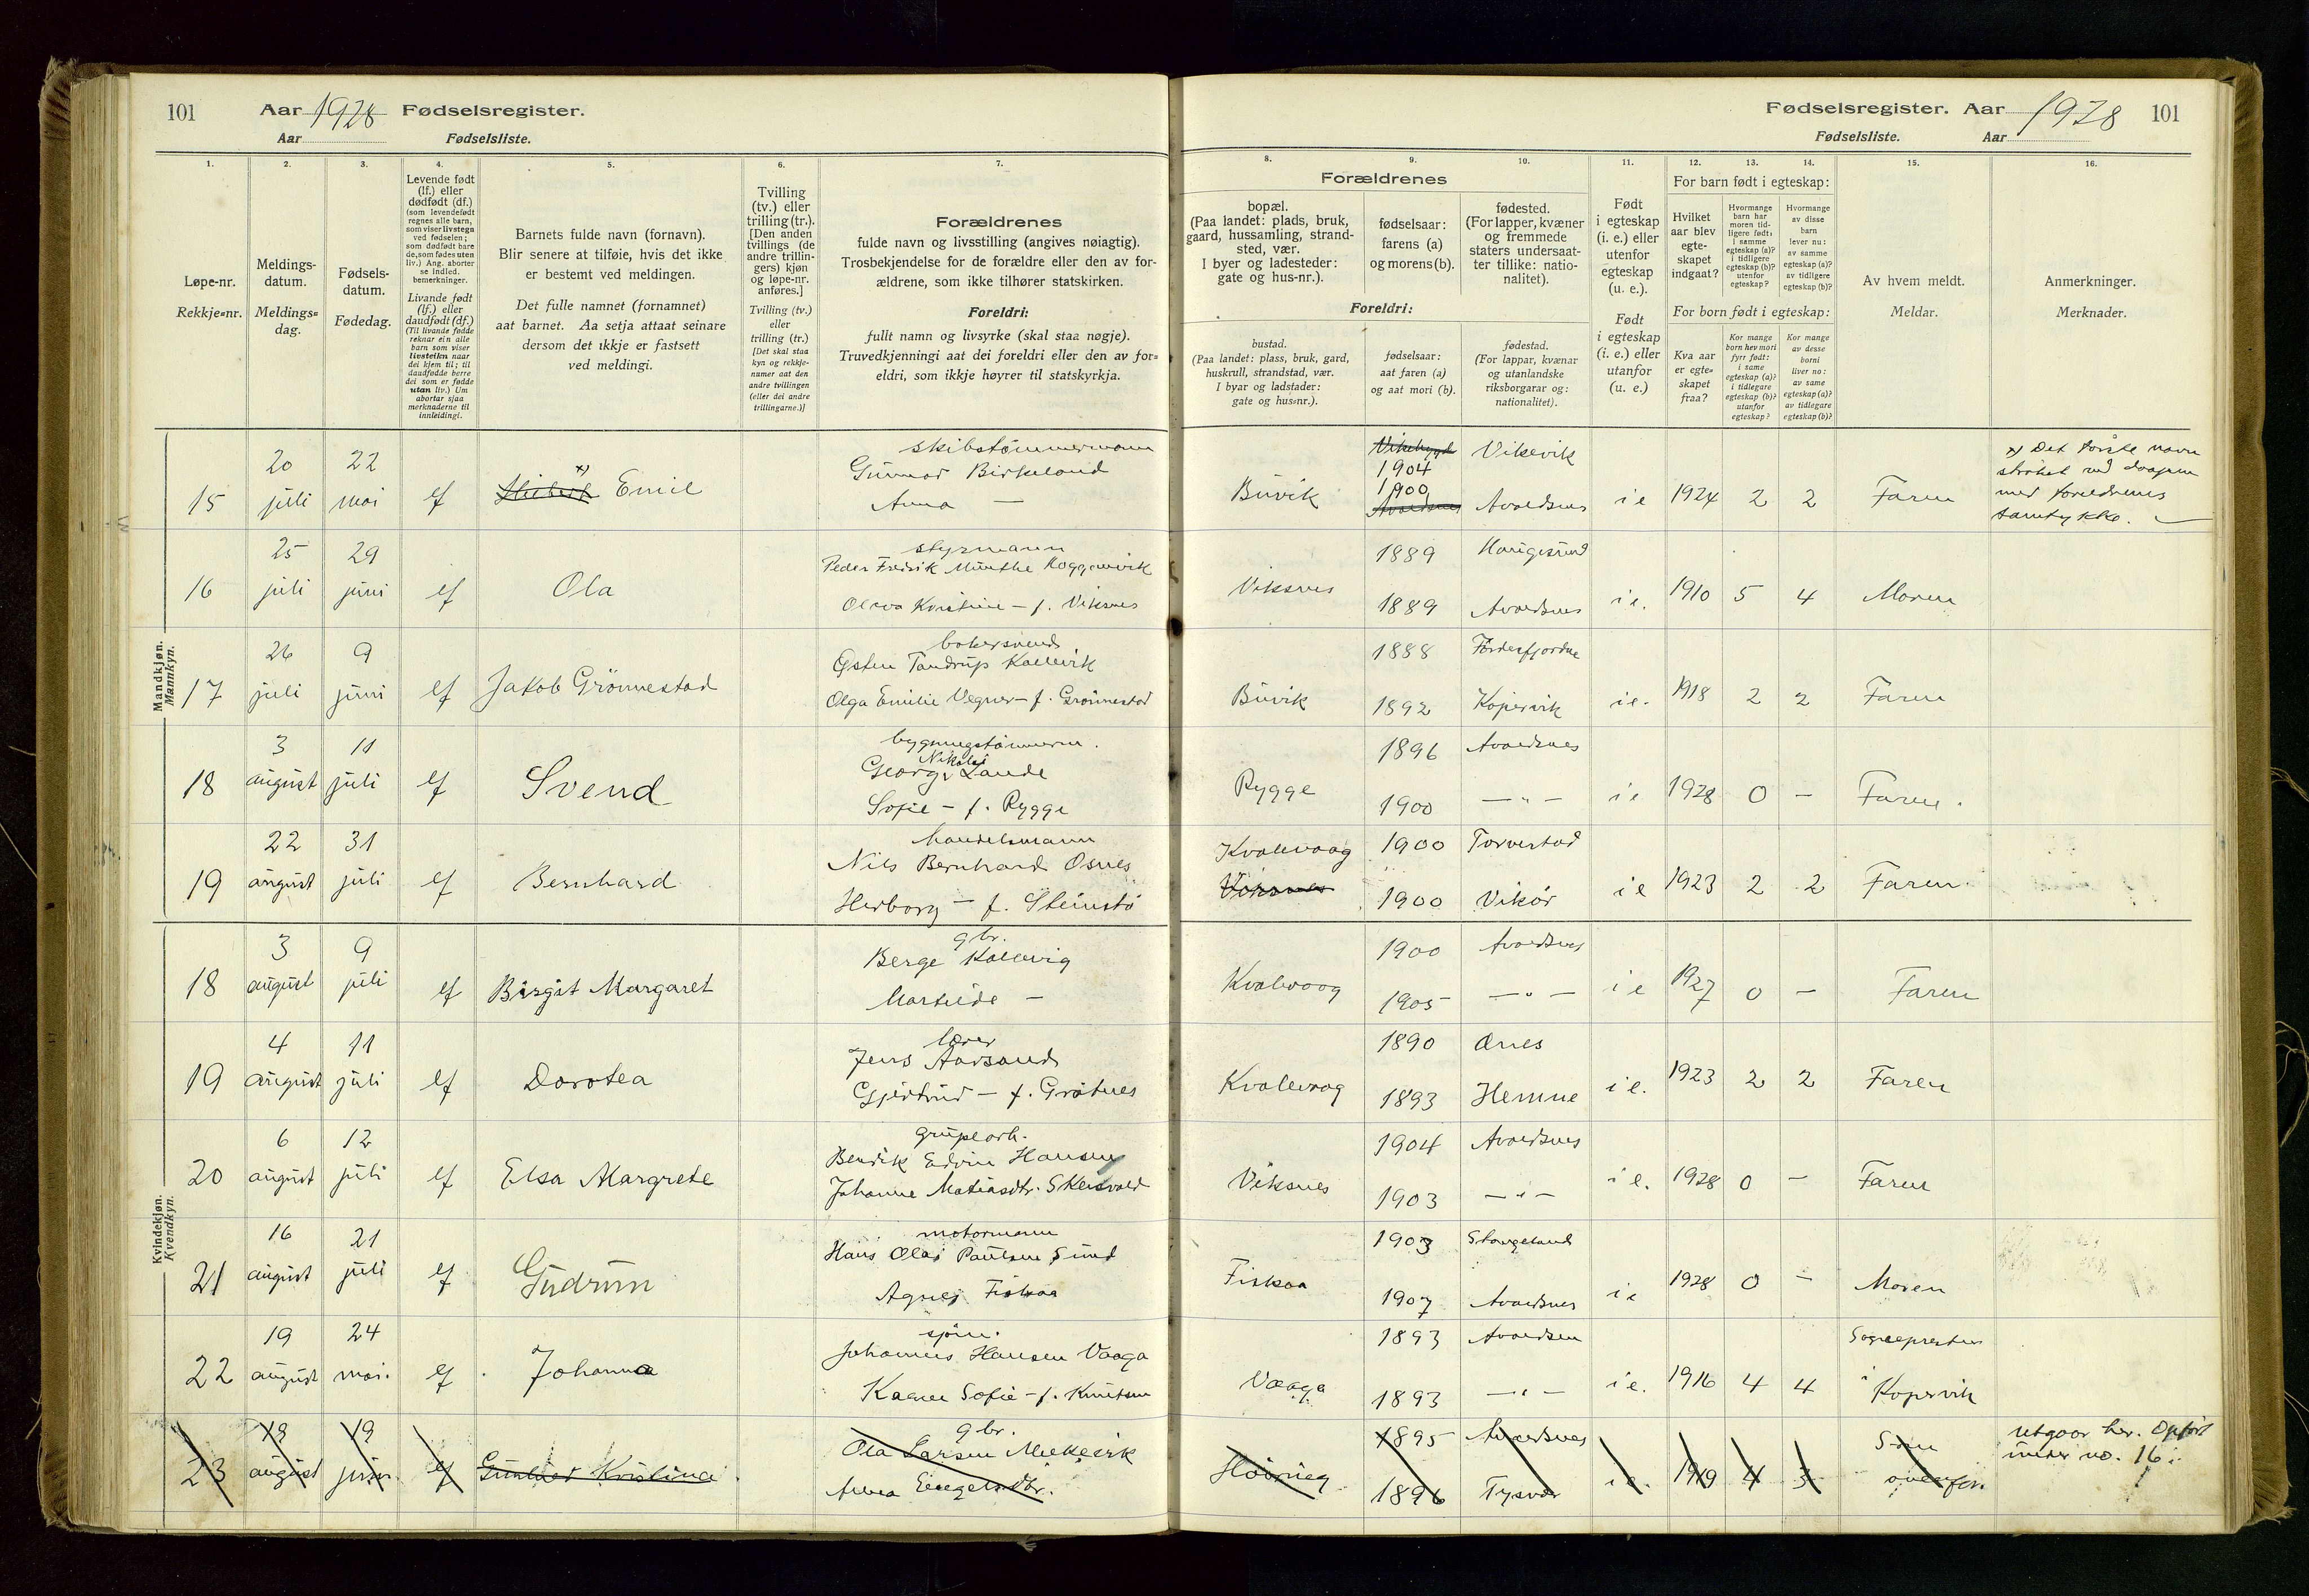 101
Aar 1928 Fødselsregister.
Aar Fødselsliste.
1.
2.
3.
4.
5.
6.
7.
Løpe-nr.
Rekkje=nr.
Meldings-
datum.
Meldings=
dag.
Fødsels-
datum.
Fødedag.
Levende født
(lf.) eller
dødfødt (df.)
(som levendefødt
regnes alle barn,
som viser livstegn
ved fødselen;
som dødfødt bare
de, som fødes uten
liv.) Ang. aborter
se indled.
bemerkninger.
Livande født
(lf.) eller
daudfødt (df.)
(Til livande fødde
reknar ein alle
barn som viser
livsteikn naar
dei kjem til; til
daudfødde berre
dei som er fødde
utan liv.) Um
abortar sjaa
merknaderne til
innleidingi.
Barnets fulde navn (fornavn).
Blir senere at tilføie, hvis det ikke
er bestemt ved meldingen.
Det fulle namnet (fornamnet)
aat barnet. Aa setja attaat seinare
dersom det ikkje er fastsett
ved meldingi.
Tvilling
(tv.) eller
trilling (tr.).
[Den anden
tvillings (de
andre trillin-
gers) kjøn
og løpe-nr.
anføres.]
Tvilling (tv.)
eller
trilling (tr.)
[Det skal staa
kyn og rekkje-
numer aat den
andre tvillingen
(eller dei andre
trillingarne.)]
Forældrenes
fulde navn og livsstilling (angives nøiagtig).
Trosbekjendelse for de forældre eller den av for-
ældrene, som ikke tilhører statskirken.
Foreldri:
fullt namn og livsyrke (skal staa nøgje).
Truvedkjenningi aat dei foreldri eller den av for=
eldri, som ikkje høyrer til statskyrkja.
Fødselsregister. Aar 1928 101
Fødselsliste. Aar
8.
9.
10.
11.
12.
13.
14.
15.
16.
Forældrenes
bopæl.
(Paa landet: plads, bruk,
gaard, hussamling, strand-
sted, vær.
I byer og ladesteder:
gate og hus-nr.).
fødselsaar:
farens (a)
og morens (b).
fødested.
(For lapper, kvæner
og fremmede
staters undersaat-
ter tillike: natio-
nalitet).
Foreldri:
bustad.
(Paa landet: plass, bruk, gard,
huskrull, strandstad, vær.
I byar og ladstader:
gate og hus=nr.).
fødselsaar:
aat faren (a)
og aat mori (b).
fødestad.
(For lappar, kvænar
og utanlandske
riksborgarar og:
nationalitet).
Født
i egteskap
(i. e.) eller
utenfor
egteskap
(u. e.).
Født
i egteskap
(i. e.) eller
utanfor
(u. e.)
For barn født i egteskap:
Hvilket
aar blev
egte-
skapet
indgaat?
Hvormange
barn har
moren tid-
ligere født:
i samme
egteskap (a)?
i tidligere
egteskap (b)?
utenfor
egteskap?
Hvormange
av disse
barn
lever nu:
av samme
egteskap (a)?
av tidligere
egteskap (b)?
For born født i egteskap:
Kva aar
er egte=
skapet
fraa?
Kor mange
born hev mori
fyrr født:
i same
egteskap (a)?
i tidlegare
egteskap (b)?
utanfor
egteskap?
Kor mange
av desse
borni
liver no:
av same
egteskap (a)?
av tidlegare
egteskap (b)?
Av hvem meldt.
Meldar.
Anmerkninger.
Merknader.
Mandkjøn.
Mannkyn.
15 20 juli 22 mai lf x) Emil
skibstømmermann
Gunnar Birkeland
Anna —
Buvik 1904 Vikevik
1900 Avaldsnes i e 1924 2 2 Faren
x) Det første navn
strøket ved daapen
med foreldrenes
samtykke.
16 25 juli 29 juni lf Ola
styrmann
Peder Fredrik Munthe Koggenvik
Olava Kristine — f. Viksnes
Viksnes 1889 Haugesund
1889 Avaldsnes i e. 1910 5 4 Moren
17 26 juli 9 juni lf Jakob Grønnestad
bakersvend
Østen Tandrup Kallevik
Olga Emilie Vegner — f. Grønnestad
Buvik 1888 Førdesfjorden
1892 Kopervik i e. 1918 2 2 Faren
18 3 august 11 juli lf Svend
bygningstømmerm.
Nikolai
Georg Lande
Sofie — f. Rygge
Rygge 1896 Avaldsnes
1900 — " — i e 1928 0 — Faren.
19 22 august 31 juli lf Bernhard
handelsmann
Nils Bernhard Osnes
Herborg — f. Steinstø
Kvalevaag 1900 Torvestad
Viksnes 1900 Vikør i e 1923 2 2 Faren.
Kvindekjøn.
Kvendkyn.
18 3 august 9 juli lf Birgit Margaret
gbr.
Berge Kallevig
Mathilde —
Kvalevaag 1900 Avaldsnes
1905 — " — i e 1927 0 — Faren
19 4 august 11 juli lf Dorotea
lærer
Jens Aarsand
Gjertrud — f. Grøtnes
Kvalevaag 1890 Ænes
1893 Hemne i e. 1923 2 2 Faren
20 6 august 12 juli lf Elsa Margrete
grubearb.
Bendik Edvin Hansen
Johanne Matiasdtr. Skeisvold
Viksnes 1904 Avaldsnes
1903 — " — i e. 1928 0 — Faren
21 16 august 21 juli lf Gudrun
motormann
Hans Olai Paulsen Sund
Agnes Fiskaa
Fiskaa 1903 Stangeland
1907 Avaldsnes i e 1928 0 — Moren
22 19 august 24 mai. lf Johanna
sjøm.
Johannes Hansen Vaaga
Karen Sofie — f. Knutsen
Vaaga 1893 Avaldsen
1893 — " — i e. 1916 4 4 Sognepresten
i Kopervik
23 19 august 19 juni lf Gunhild Kristina
gbr.
Ola Larsen Mekjevik
Anna Engelsdtr.
1895 Avaldsnes
1896 Tysvær i e. 1919 4 3
utgaar her. Opført
under no. 16.